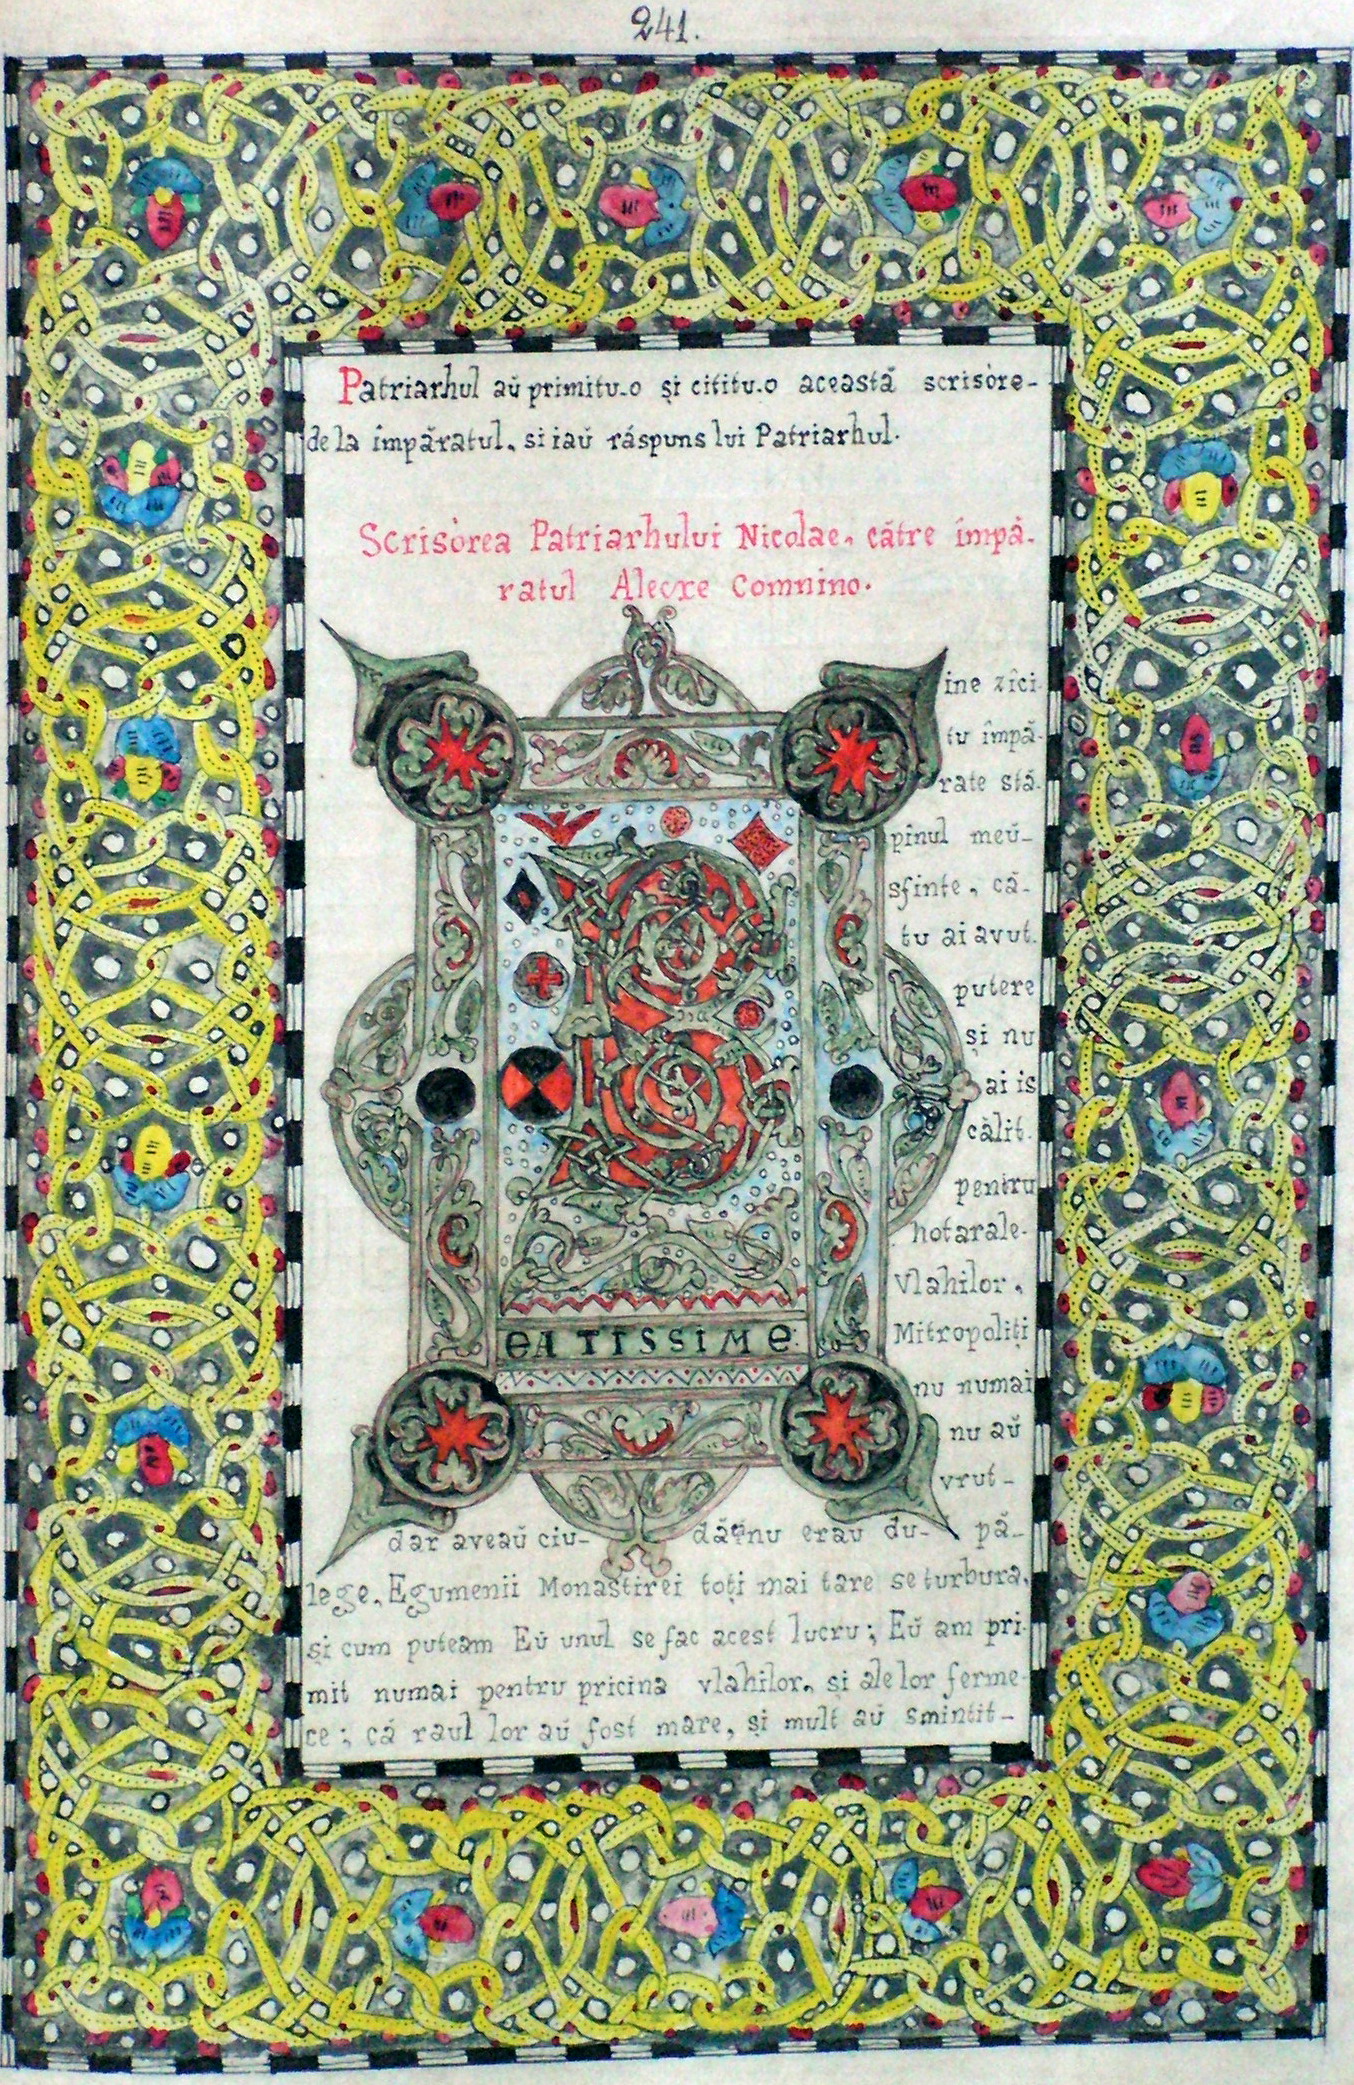 241.
Patriarhul aŭ primitu-o și cititu-o această scrisòre-
de la împăratul, si iaŭ răspuns lui Patriarhul.
Scrisòrea Patriarhului Nicolae, către împă-
ratul Alecxe Comnino.
B
eatissime:
ine zîci
tu împă-
rate stă-
pînul meŭ-
sfinte, că-
tu ai avut.
putere
și nu
ai is
călit.
pentru
hotarale-
Vlahilor,
Mitropoliți
nu numai
nu aŭ
vrut-
dar aveaŭ ciu- dă nu erau du- pă-
lege, Egumenii Monastirei toți mai tare se turbura,
și cum puteam Eŭ unul se fac acest lucru; Eŭ am pri-
mit numai pentru pricina vlahilor, și ale lor ferme-
ce; că raul lor aŭ fost mare, și mult aŭ smintit-